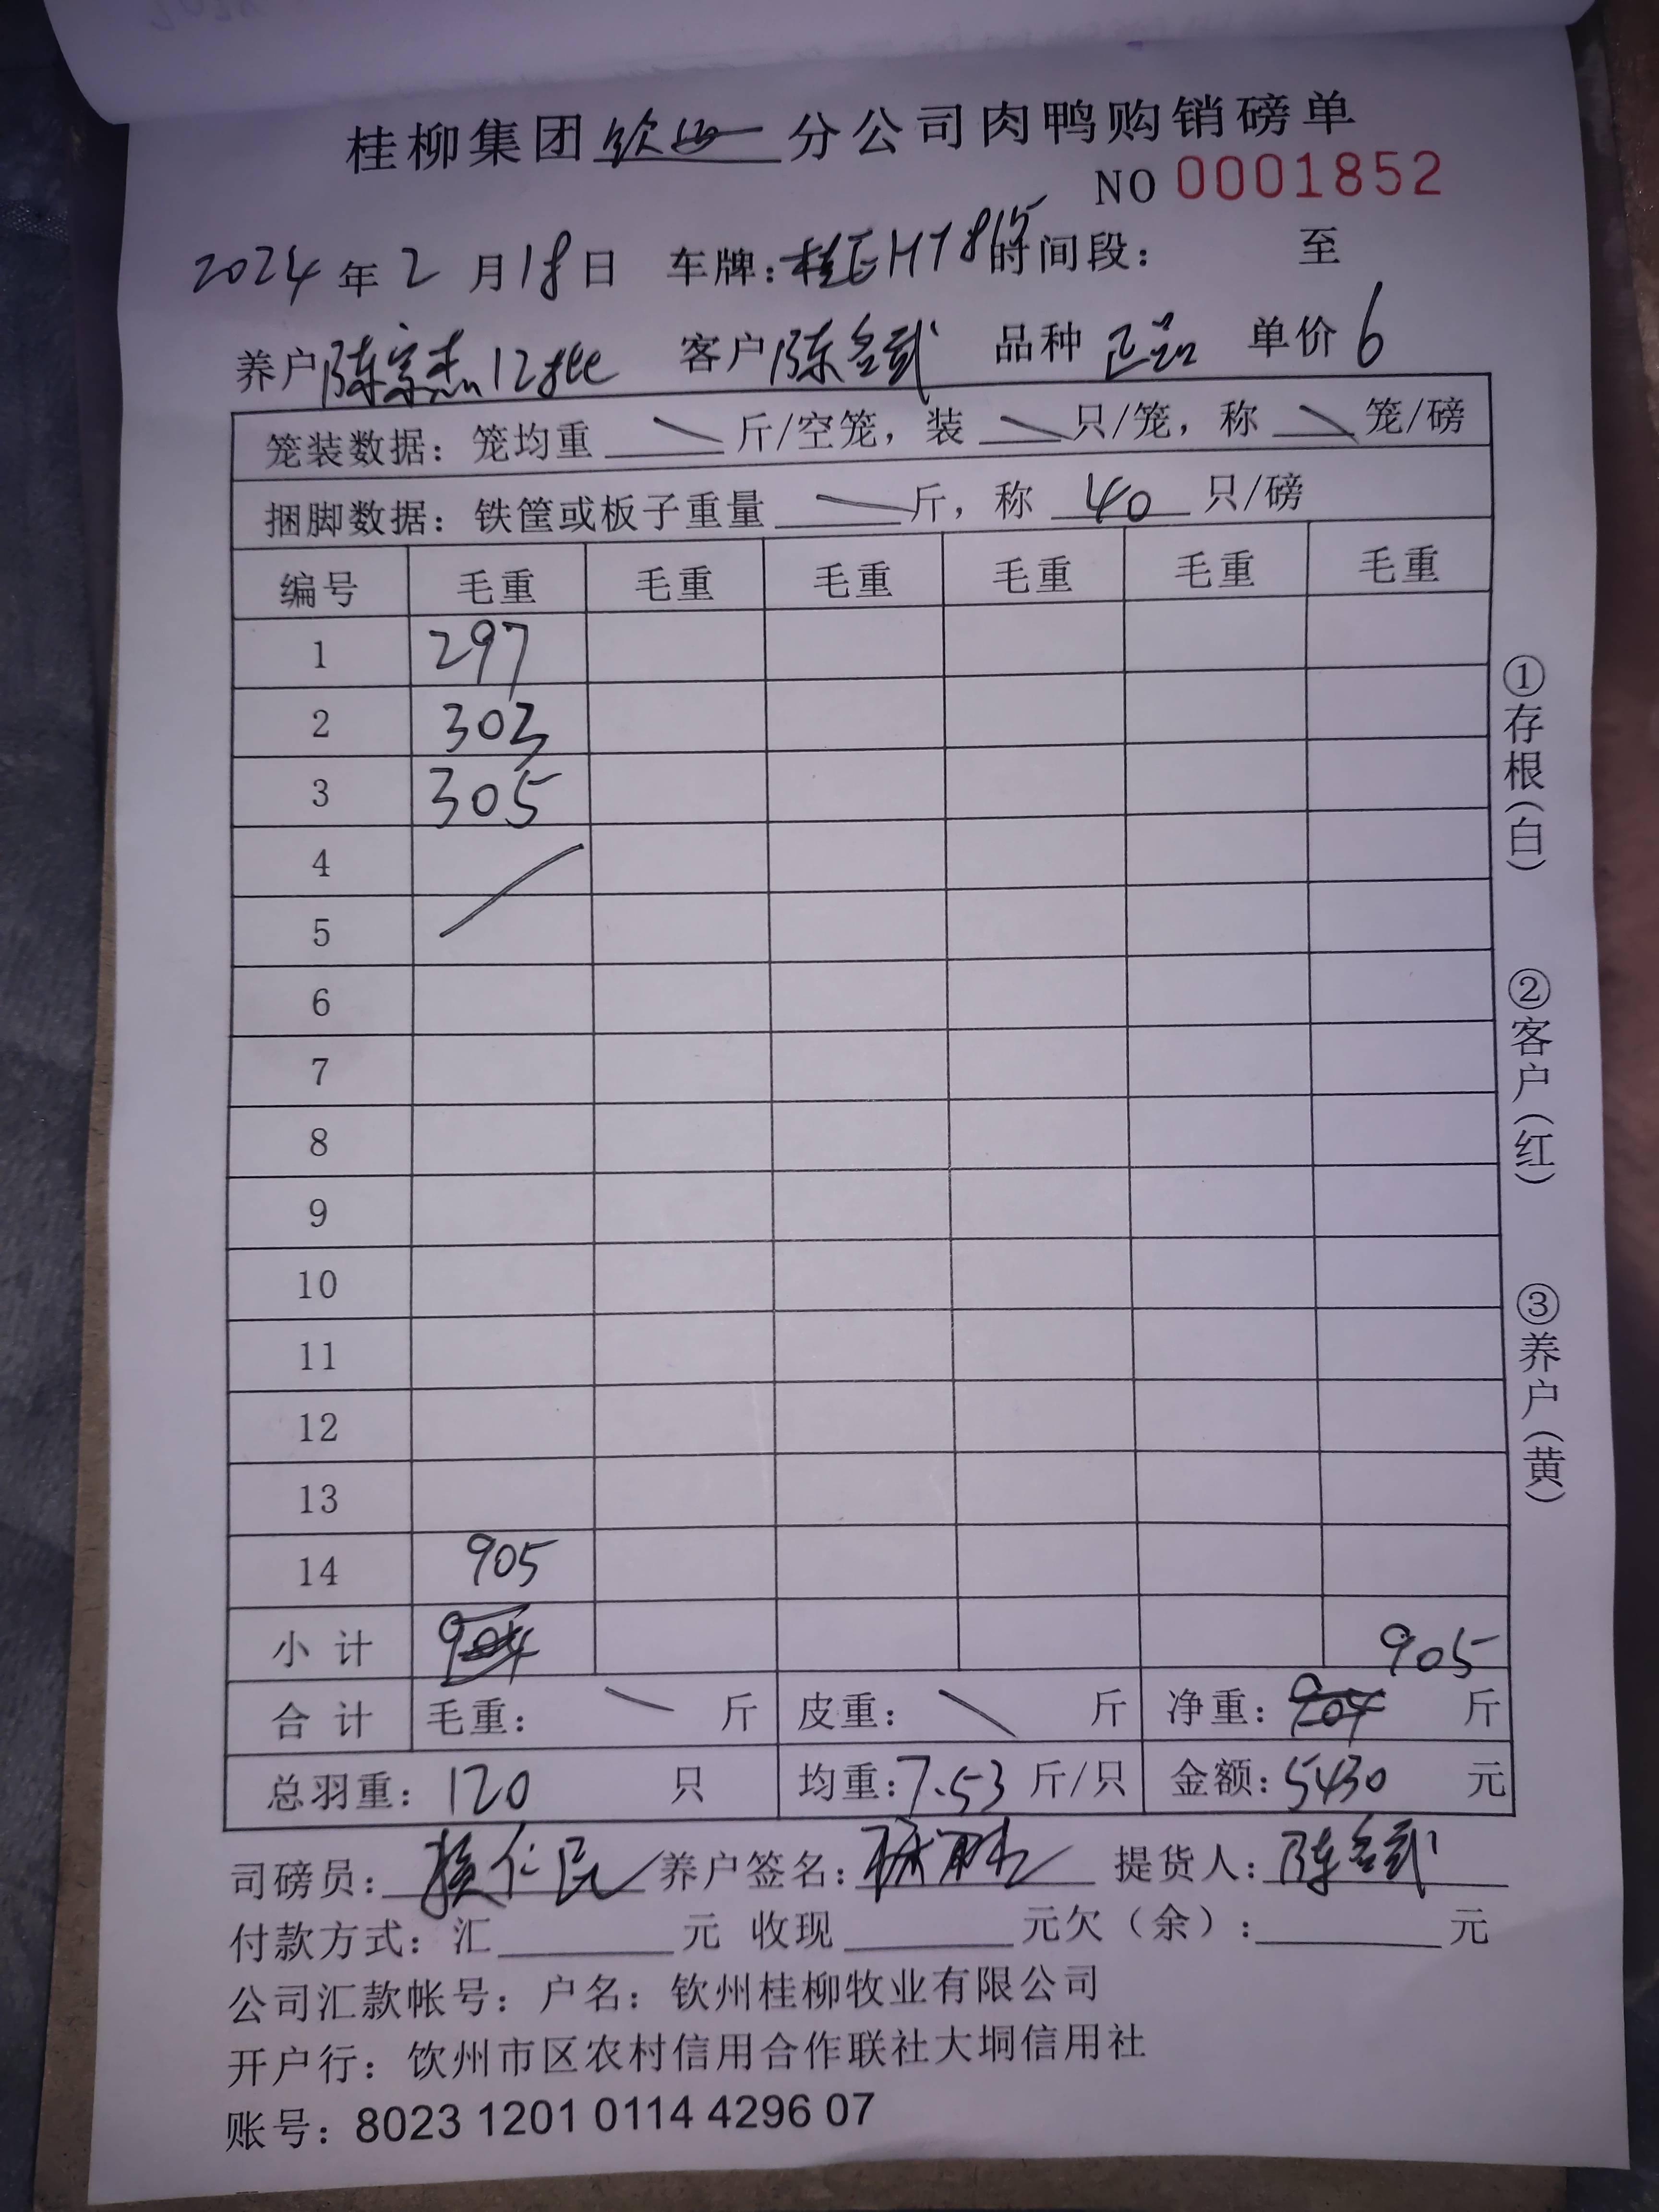 桂柳集团 钦 分公司肉鸭购销磅单
NO 0001852
2024 年 2 月 18 日 车牌: 桂EH7815 时间段: 至
养户 陈宗杰12批 客户 陈名武 品种 正品 单价 6
笼装数据: 笼均重 \ 斤/空笼, 装 \ 只/笼, 称 \ 笼/磅
捆脚数据: 铁筐或板子重量 \ 斤, 称 40 只/磅
编号 毛重 毛重 毛重 毛重 毛重 毛重
1 297
2 303
3 305
4
5
6
7
8
9
10
11
12
13
14 905
小计 904 905
合计 毛重: \ 斤 皮重: \ 斤 净重: 904 斤
总羽重: 120 只 均重: 7.53 斤/只 金额: 5430 元
司磅员: 仁民 养户签名: 提货人: 陈名武
付款方式: 汇 元 收现 元欠(余): 元
公司汇款帐号: 户名: 钦州桂柳牧业有限公司
开户行: 钦州市区农村信用合作联社大垌信用社
账号: 8023 1201 0114 4296 07
①存根(白)
②客户(红)
③养户(黄)